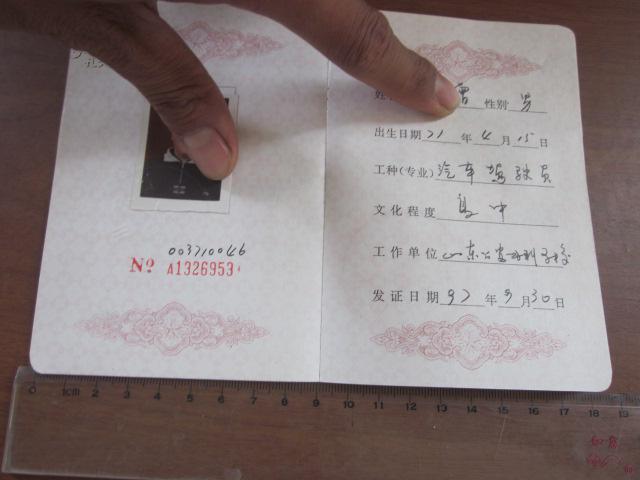 003710046
No A1326953
性别 男
出生日期 71 年 4 月 15 日
工种(专业) 汽车驾驶员
文化程度 高中
工作单位 山东公安专科学校
发证日期 97 年 9 月 30 日
0 1cm 2 3 4 5 6 7 8 9 10 11 12 13 14 15 16 17 18 19